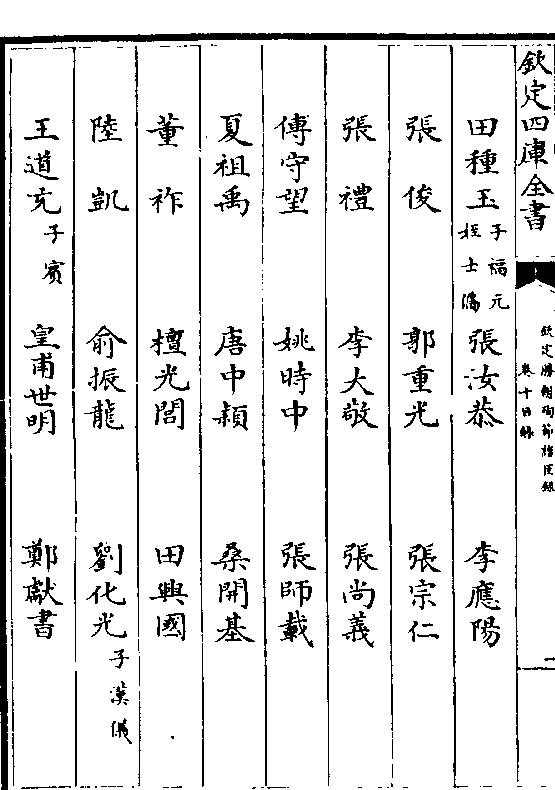 欽定四庫全書
欽定勝朝殉節諸臣錄
卷十目錄
田種玉 子福元 姪士潘 張汝恭 李應陽
張俊 郭重光 張宗仁
張禮 李大敬 張尚義
傅守望 姚時中 張師載
夏祖禹 唐中穎 桑開基
董祚 檀光誾 田興國
陸凱 俞振龍 劉化光 子漢儀
王道充 子賓 皇甫世明 鄭獻書